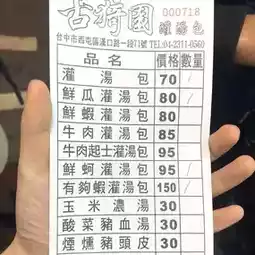 古稀園 000718 灌湯包
台中市西屯區漢口路一段71號 TEL:04-2311-0560
品名 價格 數量
灌湯包 70 /
鮮瓜灌湯包 80 /
鮮蝦灌湯包 80
牛肉灌湯包 85
牛肉起士灌湯包 95
鮮蚵灌湯包 95 /
有夠蝦灌湯包 150 /
玉米濃湯 30
酸菜豬血湯 30
煙燻豬頭皮 30